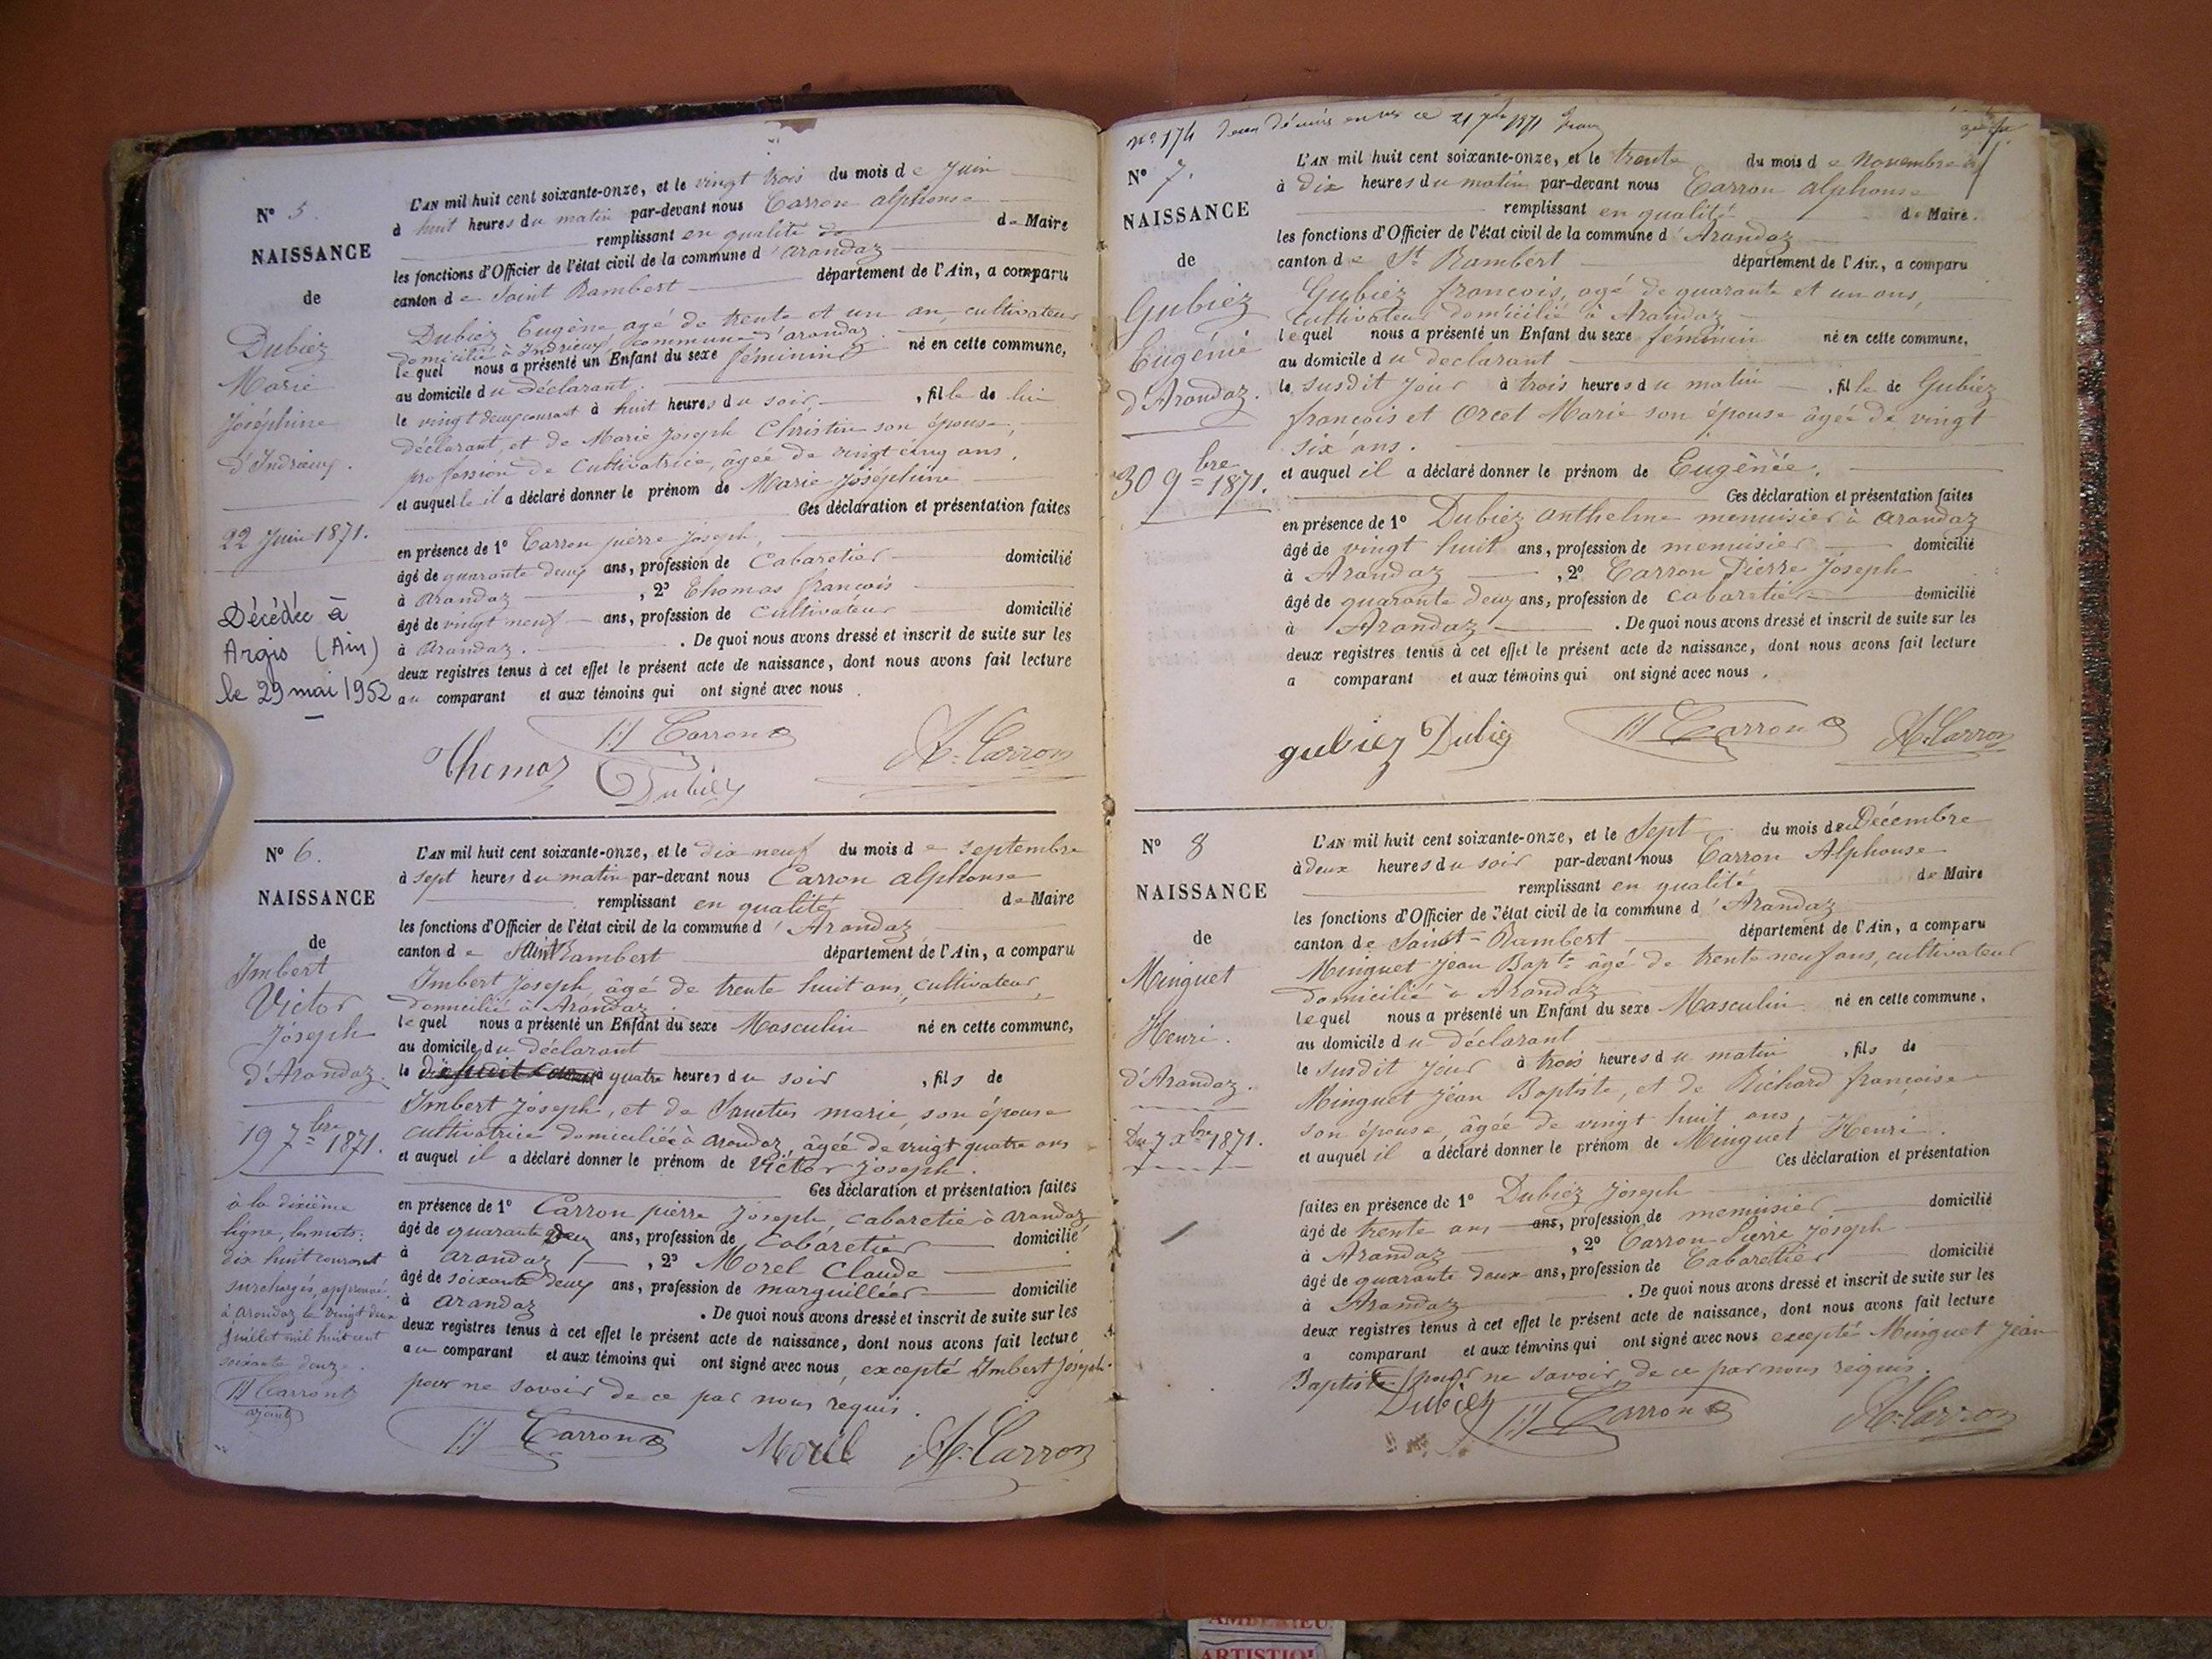 N° 5.
NAISSANCE
de
Dubiez
Marie
Joséphine
d'Indrieux.
22 Juin 1871.
Décédée à
Argis (Ain)
le 29 mai 1952
L'AN mil huit cent soixante-onze, et le vingt trois du mois de Juin
à huit heures du matin par-devant nous Carron alphonse
remplissant en qualité de de Maire
les fonctions d'Officier de l'état civil de la commune d'arandaz
canton de Saint Rambert département de l'Ain, a comparu
Dubiez Eugène agé de trente et un an, cultivateur
domicilié à Indrieux commune d'arandaz
lequel nous a présenté un Enfant du sexe féminin né en cette commune,
au domicile du déclarant.
le vingt deux courant à huit heures du soir, fille de lui
déclarant, et de Marie Joseph Christin son épouse,
profession de cultivatrice, âgée de vingt cinq ans.
et auquelle il a déclaré donner le prénom de Marie Joséphine
Ces déclaration et présentation faites
en présence de 1° Carron pierre Joseph,
âgé de quarante deux ans, profession de Cabaretier domicilié
à arandaz, 2° Thomas françois
âgé de vingt neuf ans, profession de cultivateur domicilié
à arandaz. . De quoi nous avons dressé et inscrit de suite sur les
deux registres tenus à cet effet le présent acte de naissance, dont nous avons fait lecture
au comparant et aux témoins qui ont signé avec nous.
Carron
Thomas Dubiez A. Carron
N° 6.
NAISSANCE
de
Imbert
Victor
Joseph
d'Arandaz.
19 7bre 1871.
à la dixième
ligne, les mots:
dix huit courant
surchargés, approuvé
à Arandaz le vingt deux
Juillet mil huit cent
soixante douze.
Carron
L'AN mil huit cent soixante-onze, et le dix neuf du mois de septembre
à sept heures du matin par-devant nous Carron alphonse
remplissant en qualité de Maire
les fonctions d'Officier de l'état civil de la commune d'Arandaz
canton de Saint Rambert département de l'Ain, a comparu
Imbert Joseph, âgé de trente huit ans, cultivateur,
domicilié à Arandaz.
lequel nous a présenté un Enfant du sexe Masculin né en cette commune,
au domicile du déclarant
le dix huit courant à quatre heures du soir, fils de
Imbert Joseph, et de Sanctus marie, son épouse
cultivatrice domiciliée à arandaz, âgée de vingt quatre ans
et auquel il a déclaré donner le prénom de Victor Joseph.
Ces déclaration et présentation faites
en présence de 1° Carron pierre Joseph, cabaretié à arandaz
âgé de quarante deux ans, profession de cabaretier domicilié
à arandaz, 2° Morel Claude
âgé de soixante deux ans, profession de marguillier domicilié
à arandaz . De quoi nous avons dressé et inscrit de suite sur les
deux registres tenus à cet effet le présent acte de naissance, dont nous avons fait lecture
au comparant et aux témoins qui ont signé avec nous, excepté Imbert Joseph
pour ne savoir de ce par nous requis.
Carron Morel A. Carron
N° 174
N° 7.
NAISSANCE
de
Gubiez
Eugénie
d'Arandaz.
30 9bre 1871.
L'AN mil huit cent soixante-onze, et le trente du mois de Novembre
à dix heures du matin par-devant nous Carron alphonse
remplissant en qualité de Maire.
les fonctions d'Officier de l'état civil de la commune d'Arandaz
canton de St Rambert département de l'Ain, a comparu
Gubiez françois, agé de quarante et un ans,
cultivateur domicilié à Arandaz
lequel nous a présenté un Enfant du sexe féminin né en cette commune,
au domicile du declarant
le susdit jour à trois heures du matin, fille de Gubiez
françois et Orcel Marie son épouse âgée de vingt
six ans.
et auquel il a déclaré donner le prénom de Eugénie.
Ces déclaration et présentation faites
en présence de 1° Dubiez anthelme menuisier à arandaz
âgé de vingt huit ans, profession de menuisier domicilié
à Arandaz, 2° Carron Pierre Joseph
âgé de quarante deux ans, profession de cabaretier domicilié
à Arandaz . De quoi nous avons dressé et inscrit de suite sur les
deux registres tenus à cet effet le présent acte de naissance, dont nous avons fait lecture
a comparant et aux témoins qui ont signé avec nous.
gubiez Dubiez Carron A. Carron
N° 8
NAISSANCE
de
Minguet
Henri.
d'Arandaz.
Du 7 Xbre 1871.
L'AN mil huit cent soixante-onze, et le Sept du mois de Décembre
à deux heures du soir par-devant nous Carron Alphonse
remplissant en qualité de Maire
les fonctions d'Officier de l'état civil de la commune d'Arandaz
canton de Saint-Rambert département de l'Ain, a comparu
Minguet Jean Bapte âgé de trente neuf ans, cultivateur
domicilié à Arandaz
lequel nous a présenté un Enfant du sexe Masculin né en cette commune,
au domicile du déclarant
le susdit jour à trois heures du matin, fils de
Minguet Jean Baptiste, et de Richard françoise
son épouse, âgée de vingt huit ans,
et auquel il a déclaré donner le prénom de Minguet Henri.
Ces déclaration et présentation
faites en présence de 1° Dubiez Joseph
âgé de trente ans ans, profession de menuisier domicilié
à Arandaz, 2° Carron Pierre Joseph
âgé de quarante deux ans, profession de Cabaretier domicilié
à Arandaz . De quoi nous avons dressé et inscrit de suite sur les
deux registres tenus à cet effet le présent acte de naissance, dont nous avons fait lecture
a comparant et aux témoins qui ont signé avec nous excepté Minguet Jean
Baptiste pour ne savoir, de ce par nous requis.
Dubiez Carron A. Carron